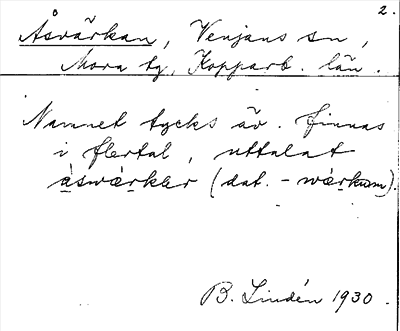 2.
Åsvärkan, Venjans sn,
Mora tg, Kopparb. län.
Namnet tycks äv. finnas
i flertal, uttalat
åswærkær (dat. - wærkum).
B. Lindén 1930.